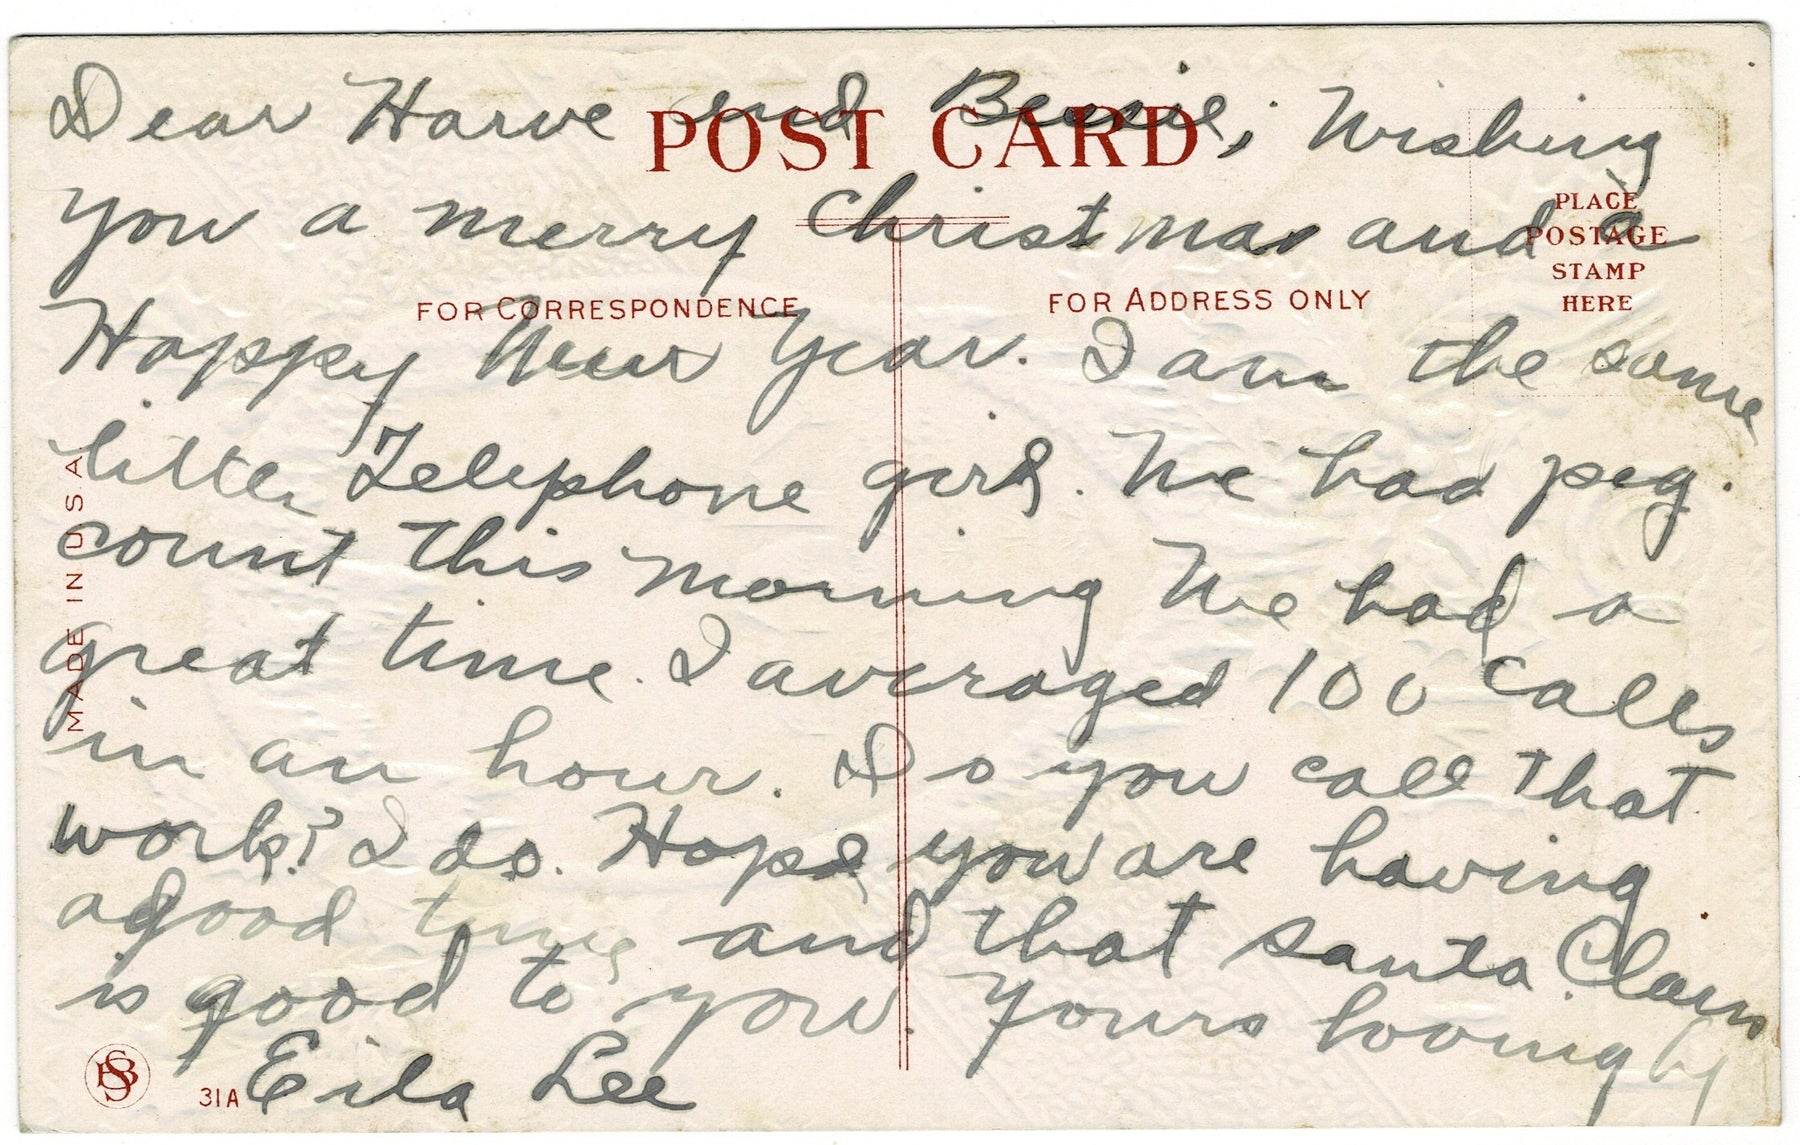 POST CARD
PLACE
POSTAGE
STAMP
HERE
FOR CORRESPONDENCE
FOR ADDRESS ONLY
MADE IN U S A
Dear Harve and Bessie, Wishing
you a merry Christmas and a
Happy New Year. I am the same
little Telephone girl. We had peg.
count this morning We had a
great time. I averaged 100 calls
in an hour. Do you call that
work? I do. Hope you are having
a good time and that Santa Claus
is good to you. Yours lovingly
Lee
31A